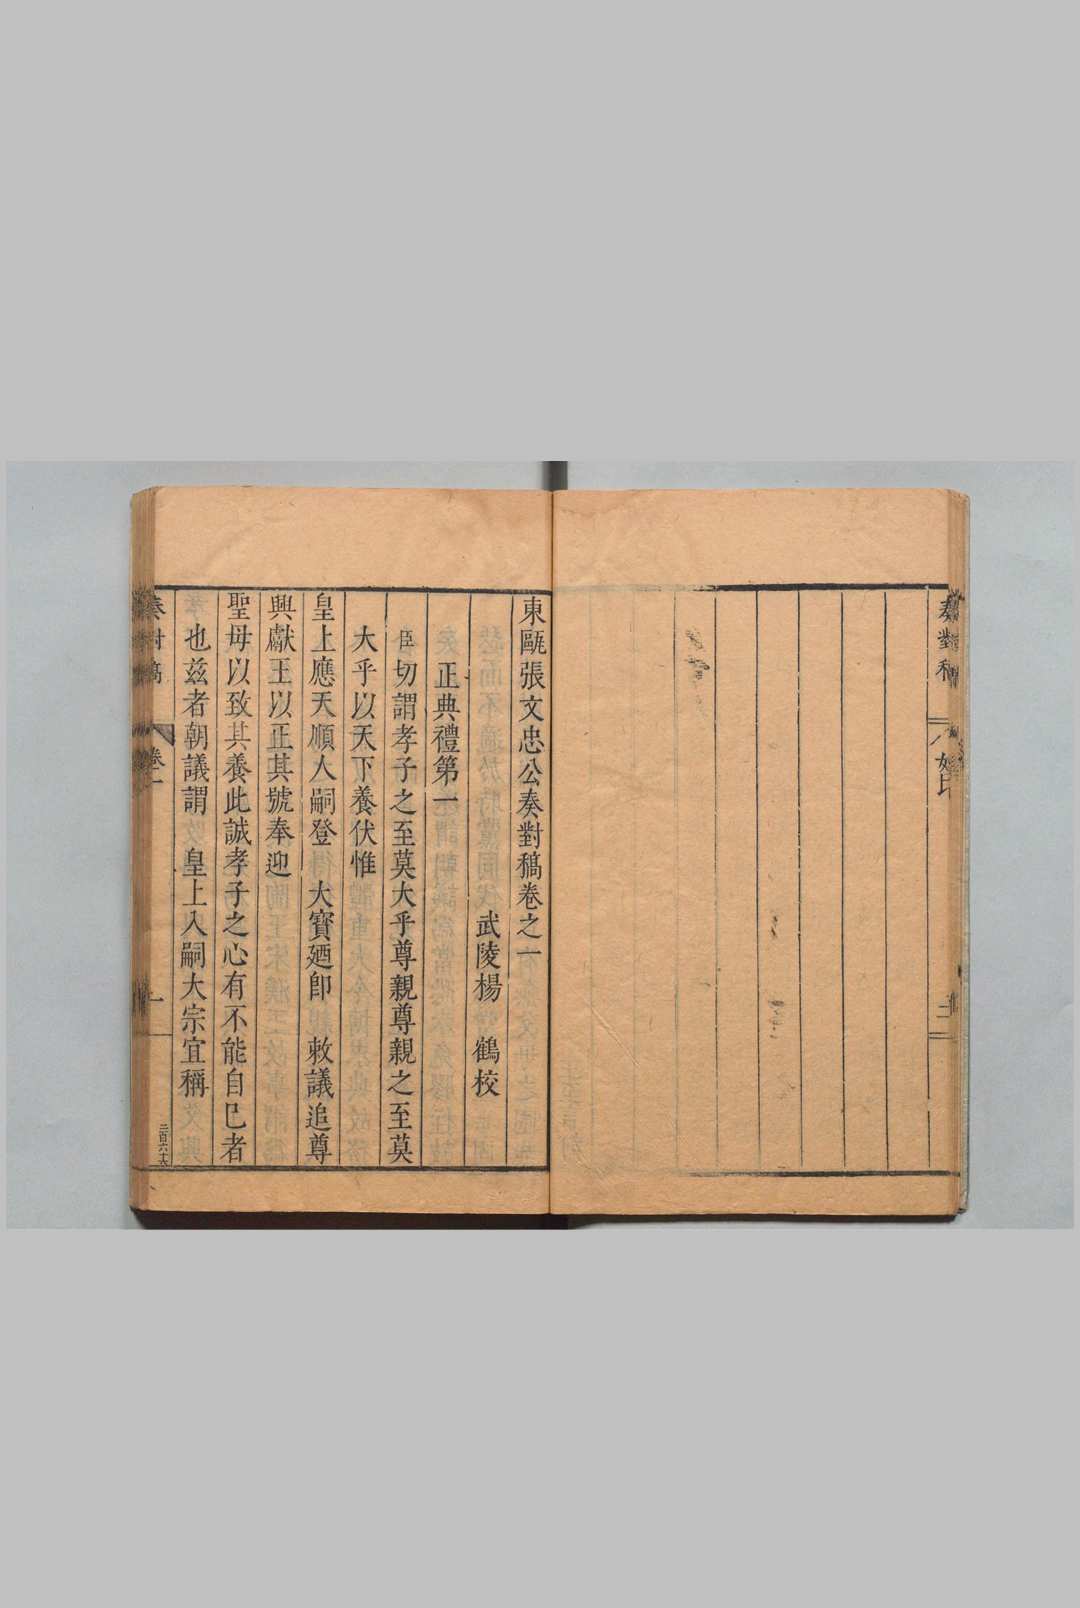 奏對稿
東甌張文忠公奏對稿卷之一
武陵楊 鶴校
正典禮第一
臣切謂孝子之至莫大乎尊親尊親之至莫
大乎以天下養伏惟
皇上應天順人嗣登 大寶廼卽 敕議追尊
興獻王以正其號奉迎
聖母以致其養此誠孝子之心有不能自已者
也茲者朝議謂 皇上入嗣大宗宜稱
奏對稿 卷一 一
二百六十六